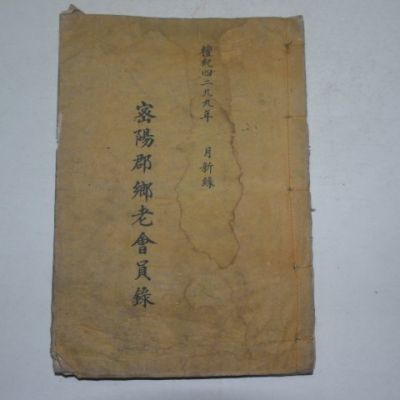 檀紀四二八九年 月新錄
密陽郡鄕老會員錄